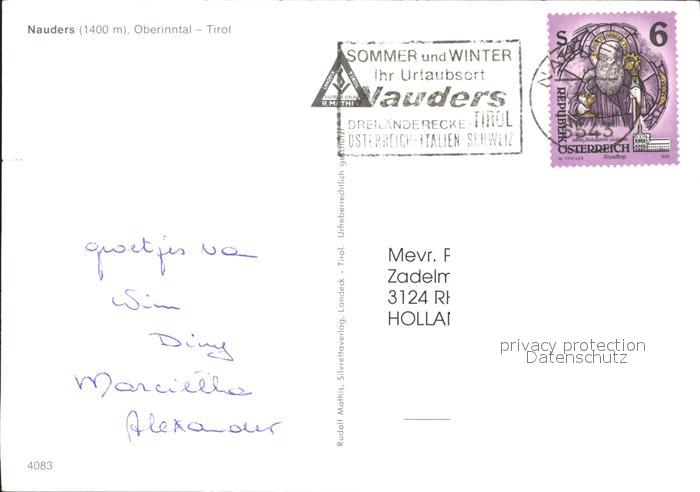 Nauders (1400 m), Oberinntal – Tirol
SOMMER und WINTER
Ihr Urlaubsort
Nauders
DREILÄNDERECKE - TIROL
ÖSTERREICH - ITALIEN - SCHWEIZ
R. MATHIS
S 6
REPUBLIK
ÖSTERREICH
6543
groetjes va
Wim
Diny
Alexander
Mevr. P
Zadelm
3124 RH
HOLLAN
privacy protection
Datenschutz
Rudolf Mathis, Silvrettaverlag, Landeck - Tirol. Urheberrechtlich geschützt
4083